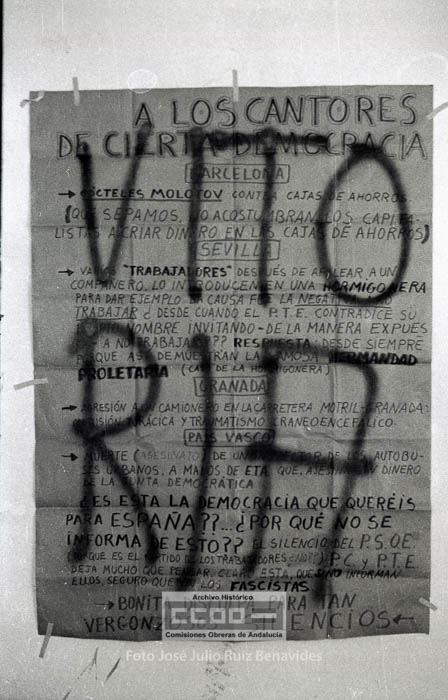 A LOS CANTORES
DE CIERTA DEMOCRACIA
BARCELONA
→ CÓCTELES MOLOTOV CONTRA CAJAS DE AHORROS
(QUE SEPAMOS, NO ACOSTUMBRAN LOS CAPITA-
LISTAS A CRIAR DINERO EN LAS CAJAS DE AHORROS)
SEVILLA
→ VARIOS "TRABAJADORES" DESPUES DE APALEAR A UN
COMPAÑERO, LO INTRODUCEN EN UNA HORMIGONERA
PARA DAR EJEMPLO A CAUSA DE LA NEGATIVA
TRABAJAR ¿DESDE CUANDO EL P.T.E. CONTRADICE SU
NOMBRE INVITANDO-DE LA MANERA EXPUES
A NO TRABAJAR??? RESPUESTA: DESDE SIEMPRE
PORQUE ASÍ DEMUESTRAN LA FAMOSA HERMANDAD
PROLETARIA (CASO DE LA HORMIGONERA)
GRANADA
→ AGRESIÓN A UN CAMIONERO EN LA CARRETERA MOTRIL-GRANADA:
TORÁCICA Y TRAUMATISMO CRANEOENCEFALICO.
PAIS VASCO
→ MUERTE (ASESINATO) DE UN INSPECTOR DE LOS AUTOBU-
SES URBANOS, A MANOS DE ETA QUE, DINERO
DE LA JUNTA DEMOCRÁTICA
¿ES ESTA LA DEMOCRACIA QUE QUERÉIS
PARA ESPAÑA??...¿POR QUÉ NO SE
INFORMA DE ESTO?? EL SILENCIO DEL P.S.O.E.
(PORQUE ES EL PARTIDO DE LOS TRABAJADORES ¿NO?) P.C. y P.T.E.
DEJA MUCHO QUE PENSAR, CLARO ESTA, QUE SINO INFORMAN
ELLOS, SEGURO QUE LOS FASCISTAS
→ BONITO PARA TAN
VERGONZ ENCIOS ←
VITO
R
Archivo Histórico
CCOO
Comisiones Obreras de Andalucía
Foto José Julio Ruiz Benavides